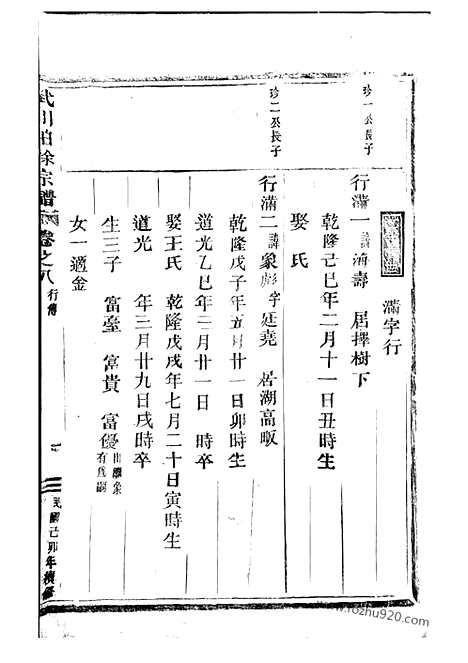 滿字行
珍一公長子
行滿一諱濟壽 居擇樹下
乾隆己巳年二月十一日丑時生
娶 氏
珍二公長子
行滿二諱象彪字廷堯 居湖高畈
乾隆戊子年五月廿一日卯時生
道光乙巳年三月廿一日 時卒
娶王氏 乾隆戊戌年七月二十日寅時生
道光 年三月廿九日戌時卒
生三子 富臺 富貴 富優出繼象有爲嗣
女一適金
武川柏徐宗譜 卷之八 行傳
民國己卯年續修
www.rozhu79.com